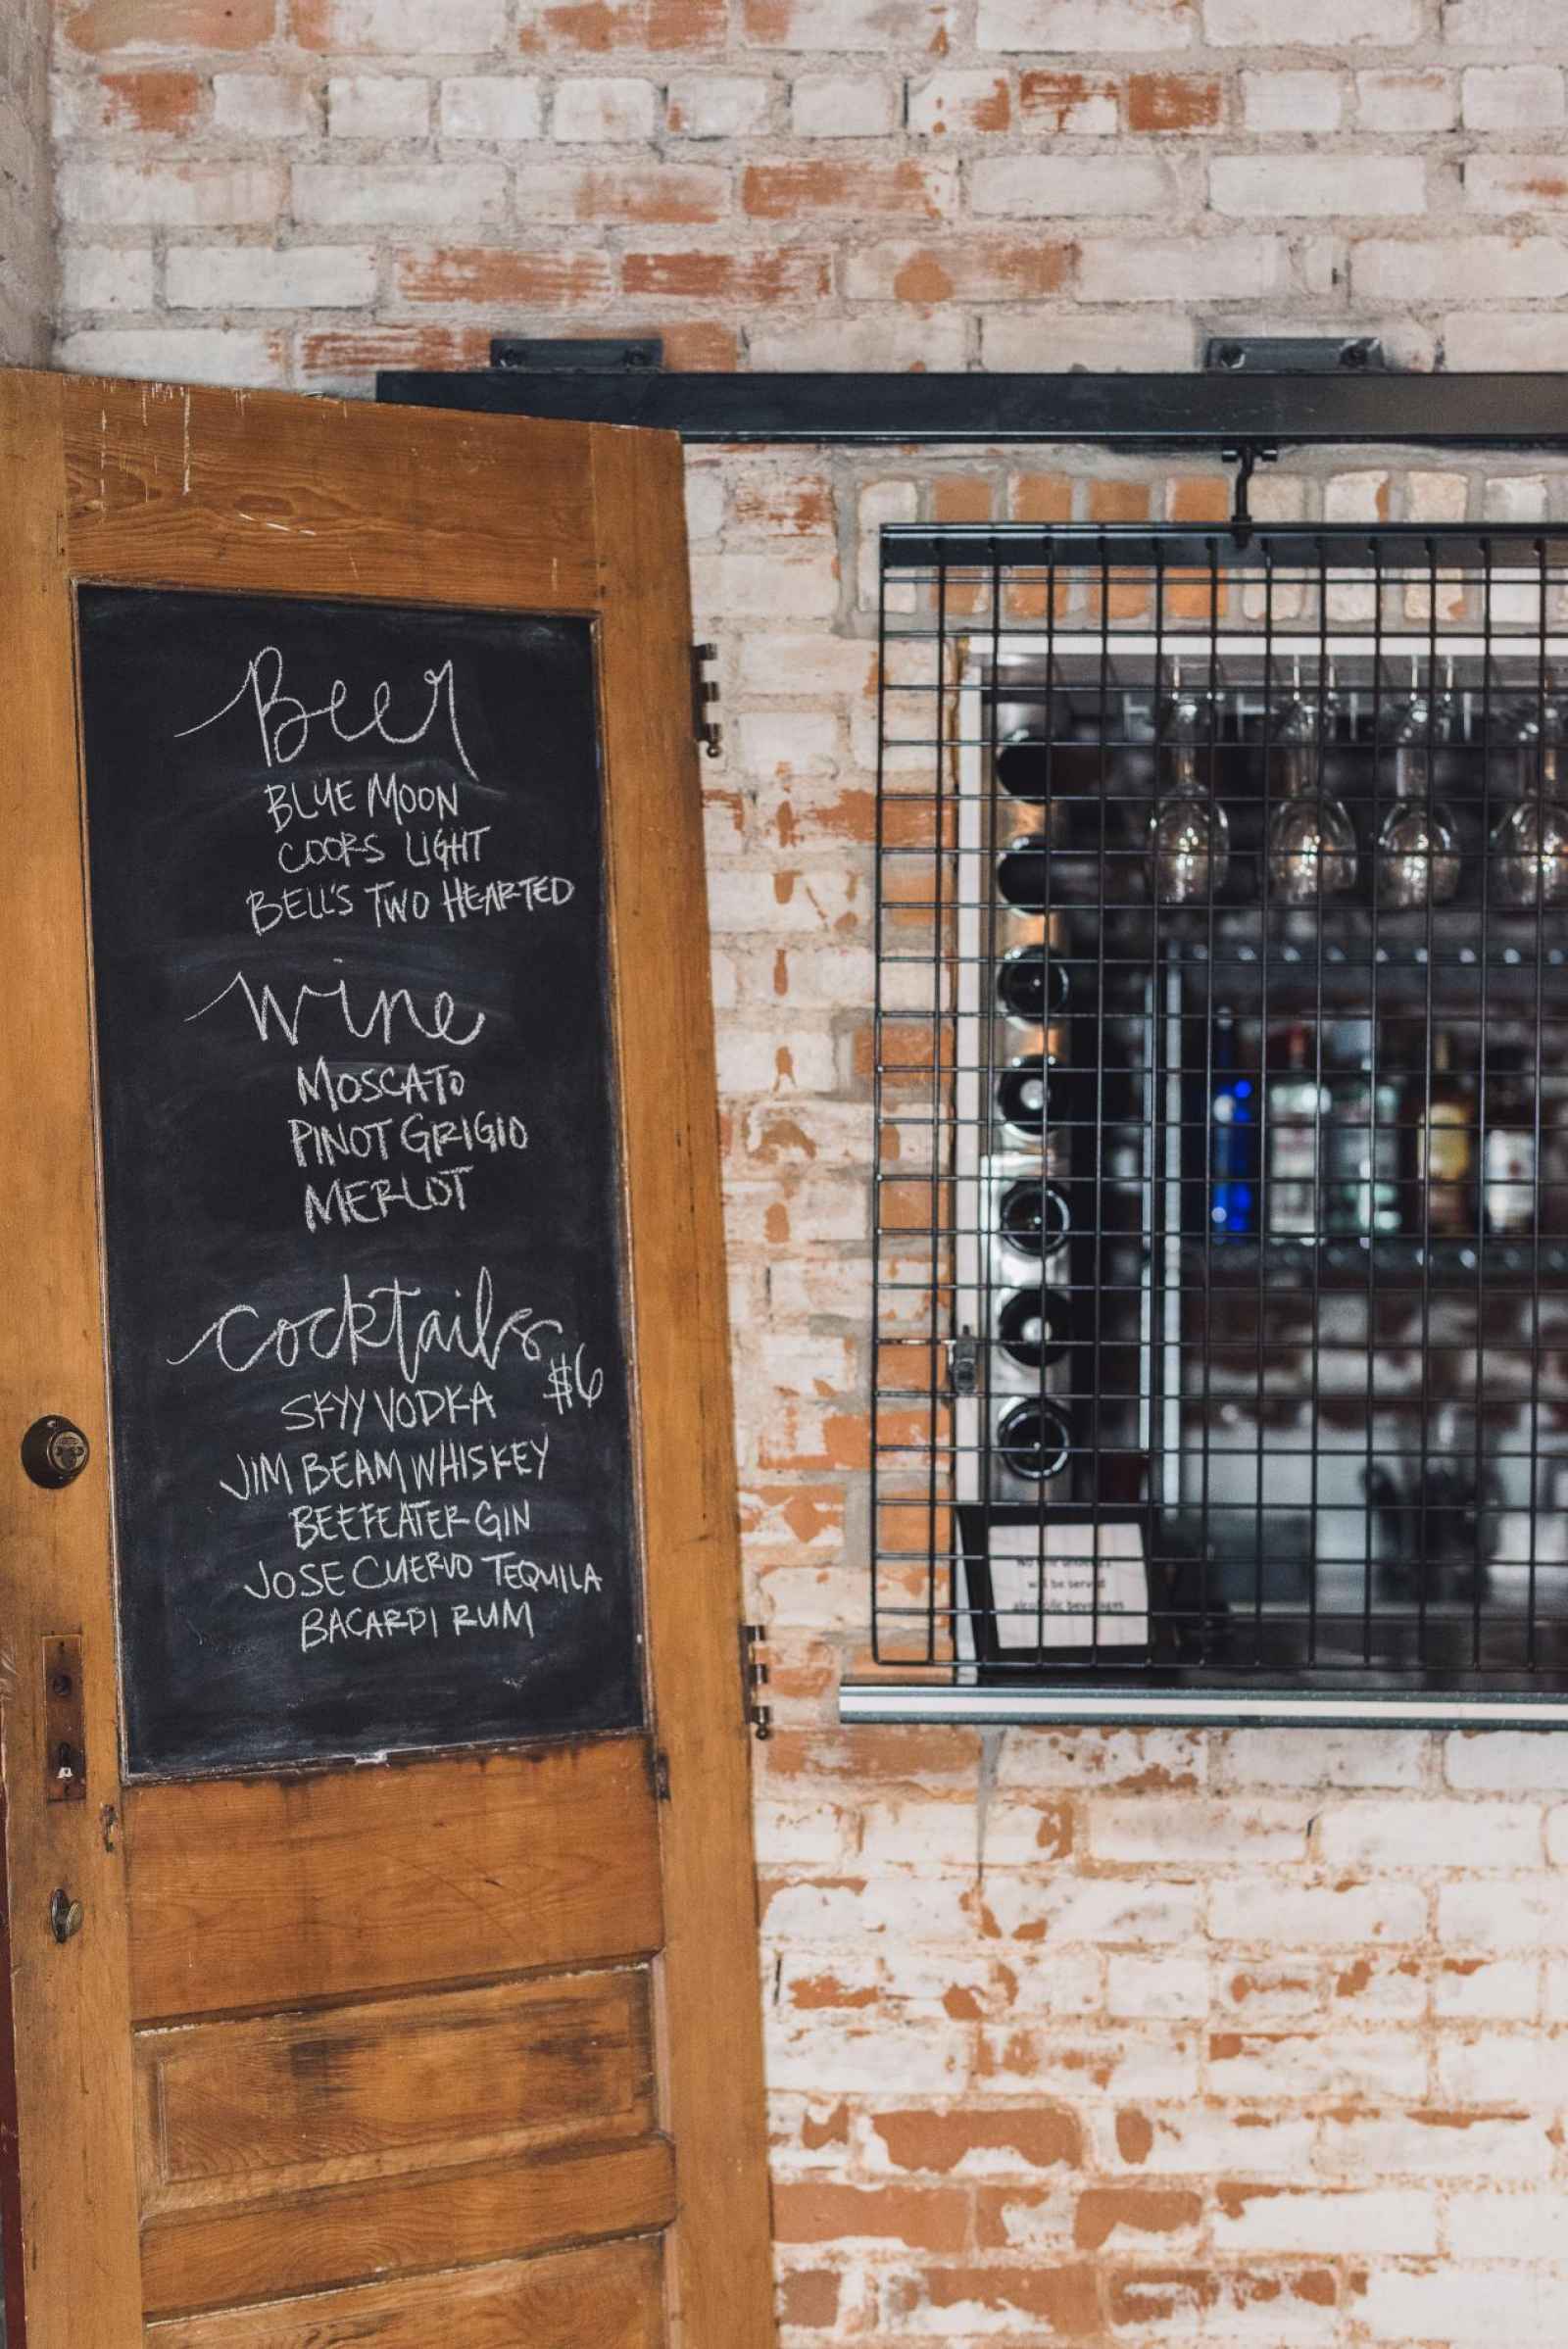 Beer
BLUE MOON
COORS LIGHT
BELL'S TWO HEARTED
Wine
MOSCATO
PINOT GRIGIO
MERLOT
Cocktails
$6
SKYY VODKA
JIM BEAM WHISKEY
BEEFEATER GIN
JOSE CUERVO TEQUILA
BACARDI RUM
will be served
alcoholic beverages